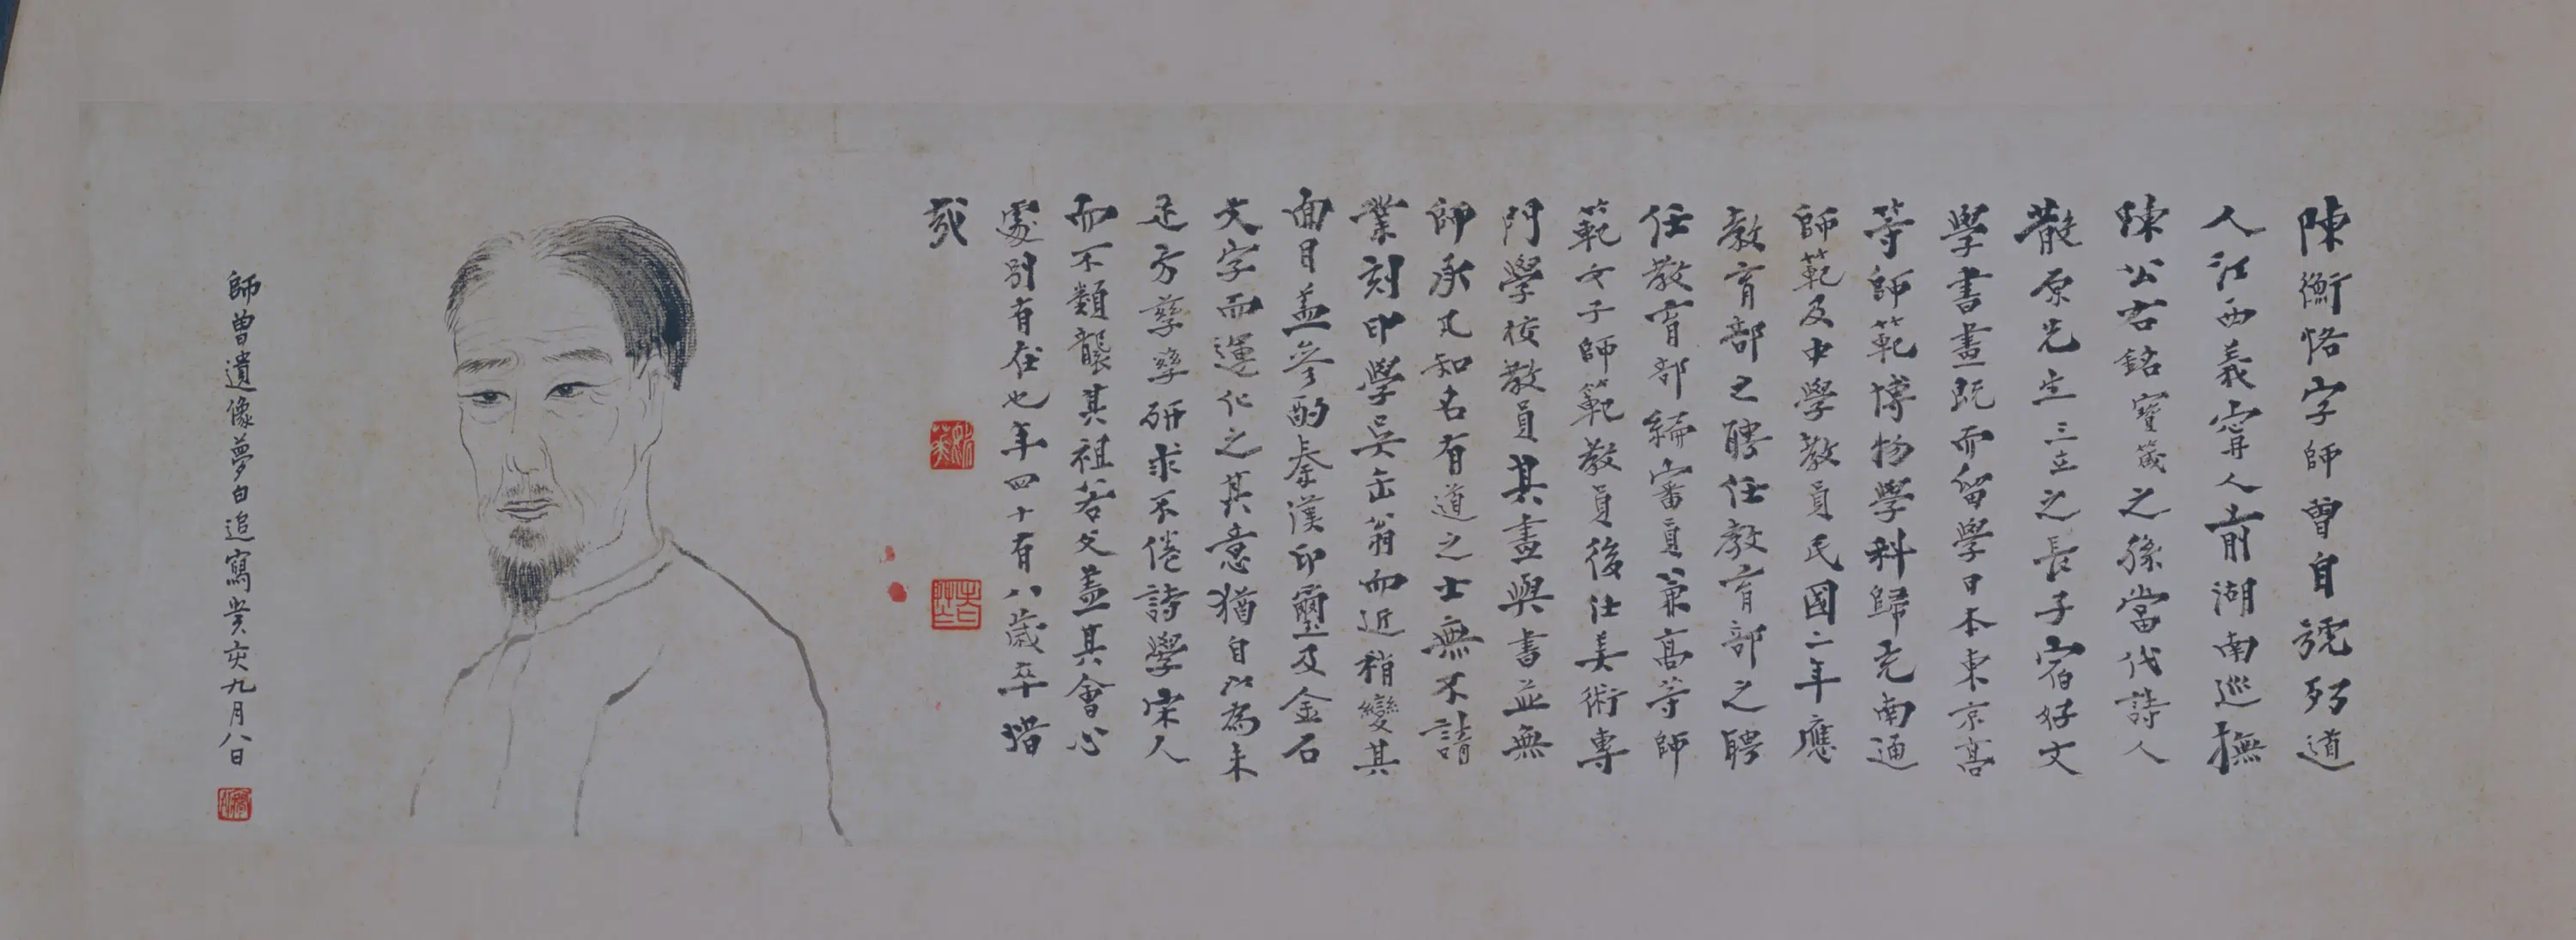 陳衡恪字師曾自號朽道
人江西義寧人前湖南巡撫
陳公右銘寶箴之孫當代詩人
散原先生三立之長子宿好文
學書畫既而留學日本東京高
等師範博物學科歸充南通
師範及中學教員民國二年應
教育部之聘任教育部之聘
任教育部編審員兼高等師
範女子師範教員後仕美術專
門學校教員其畫與書並無
師承凡知名有道之士無不請
業刻印學吳缶翁而近稍變其
面目蓋參酌秦漢印璽及金石
文字而運化之其意猶自以為未
足方孳孳研求不倦詩學宋人
而不類襲其祖若父蓋其會心
處別有在也年四十有八歲卒惜
哉
師曾遺像夢白追寫癸亥九月八日